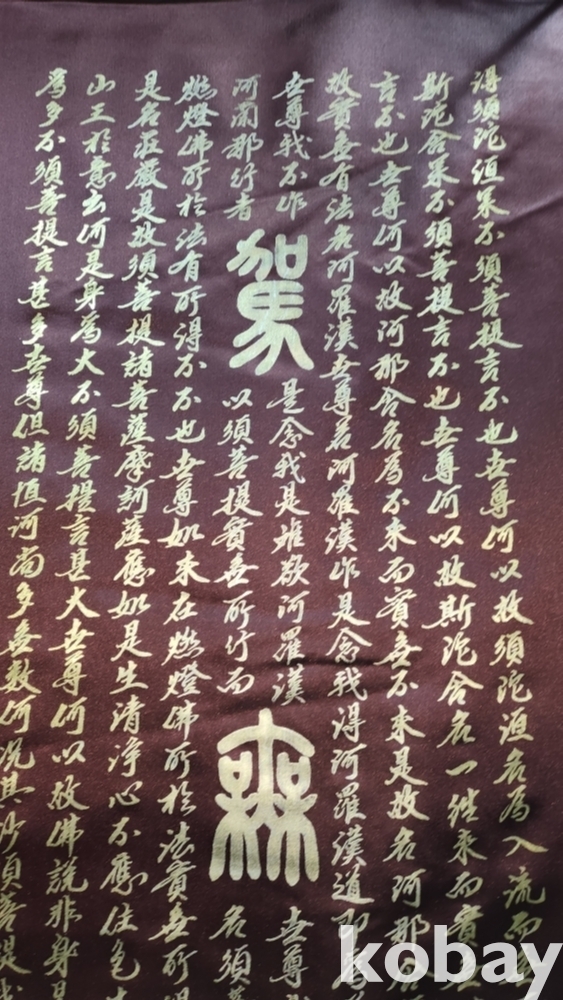 得須陀洹果不須菩提言不也世尊何以故須陀洹名為入流而
斯陀含果不須菩提言不也世尊何以故斯陀含名一徃來而實
言不也世尊何以故阿那含名為不來而實無不來是故名阿那含
故實無有法名阿羅漢世尊若阿羅漢作是念我得阿羅漢道即為
世尊我不作
是念我是離欲阿羅漢
世尊我
阿蘭那行者
以須菩提實無所行而
名須菩
駕
無
燃燈佛所於法有所得不不也世尊如來在燃燈佛所於法實無所得
是名莊嚴是故須菩提諸菩薩摩訶薩應如是生清淨心不應住色生
山王於意云何是身為大不須菩提言甚大世尊何以故佛說非身是
為多不須菩提言甚多世尊但諸恒河尚多無數何況其沙須菩提我
kobay